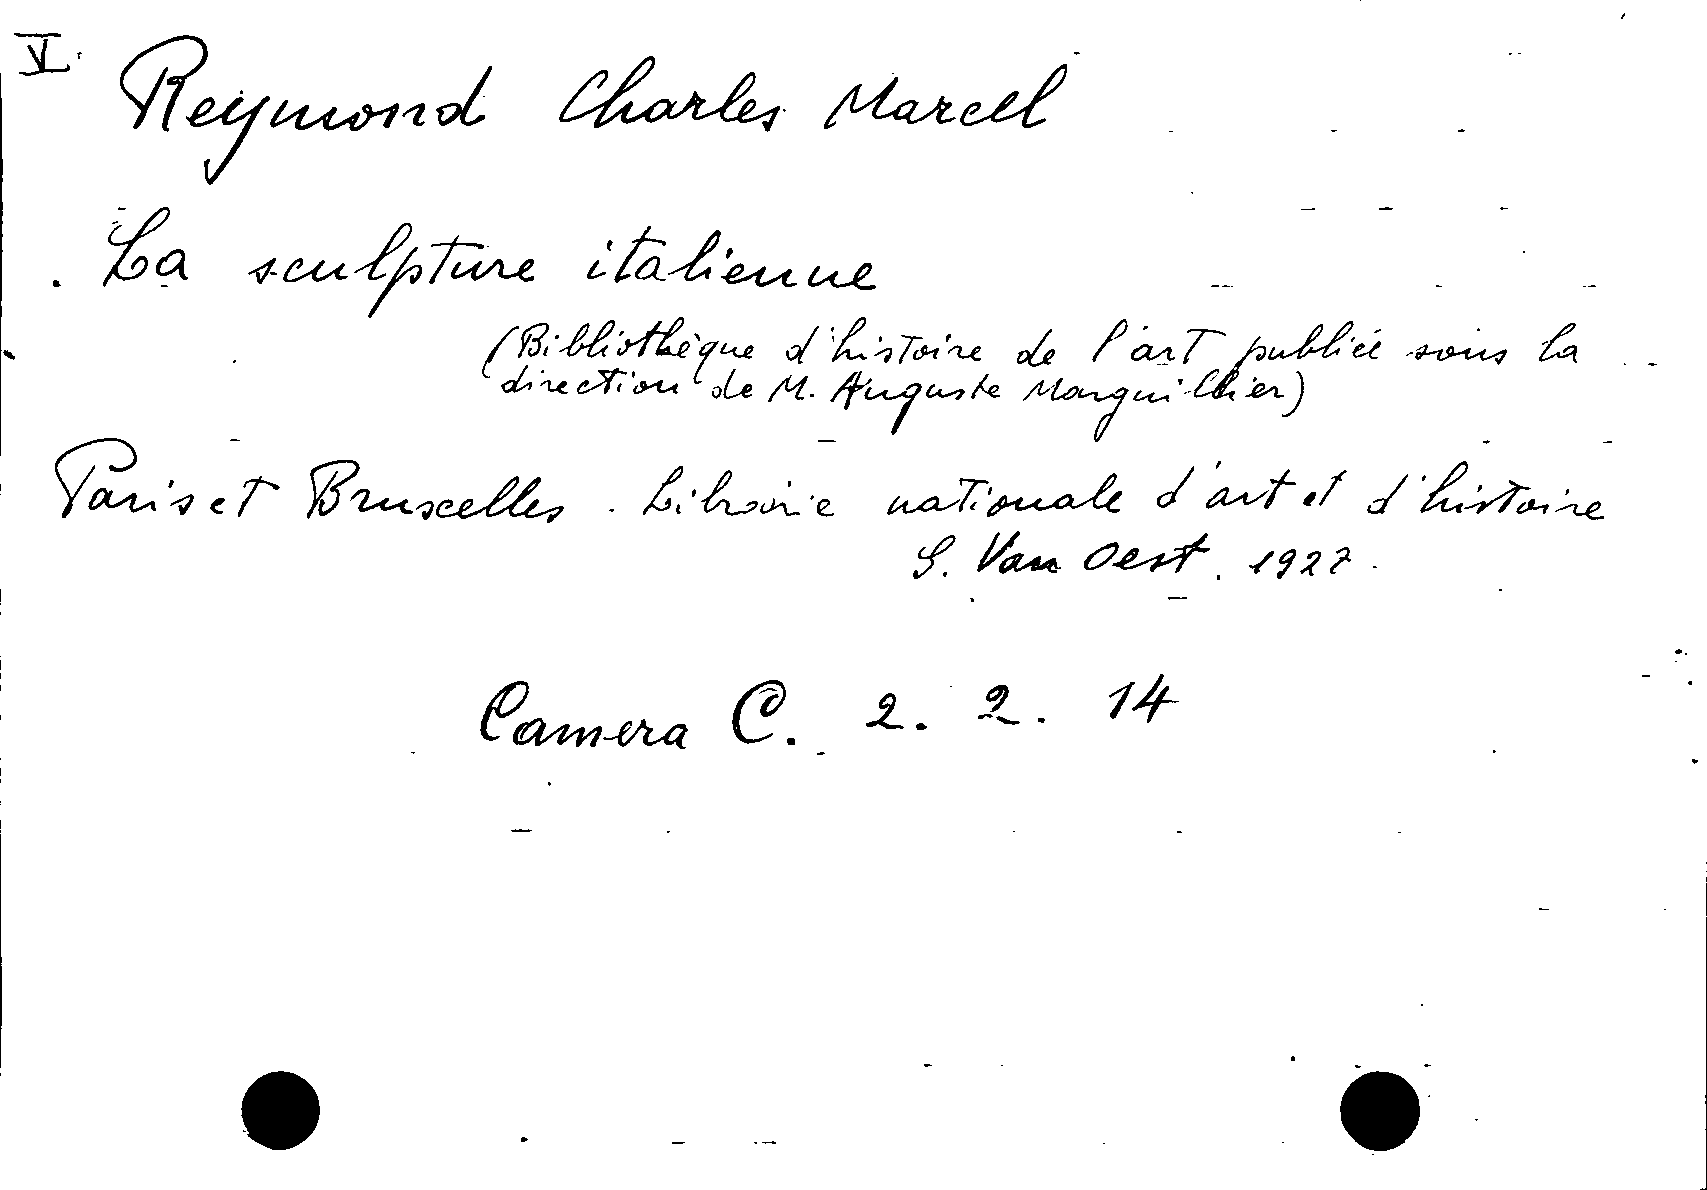 V.
Reymond Charles Marcel
La sculpture italienne
(Bibliothèque d'histoire de l'art publiée sous la
direction de M. Auguste Marguillier)
Paris et Bruxelles. Librairie nationale d'art et d'histoire
G. Van Oest. 1927.
Camera C. 2. 2. 14